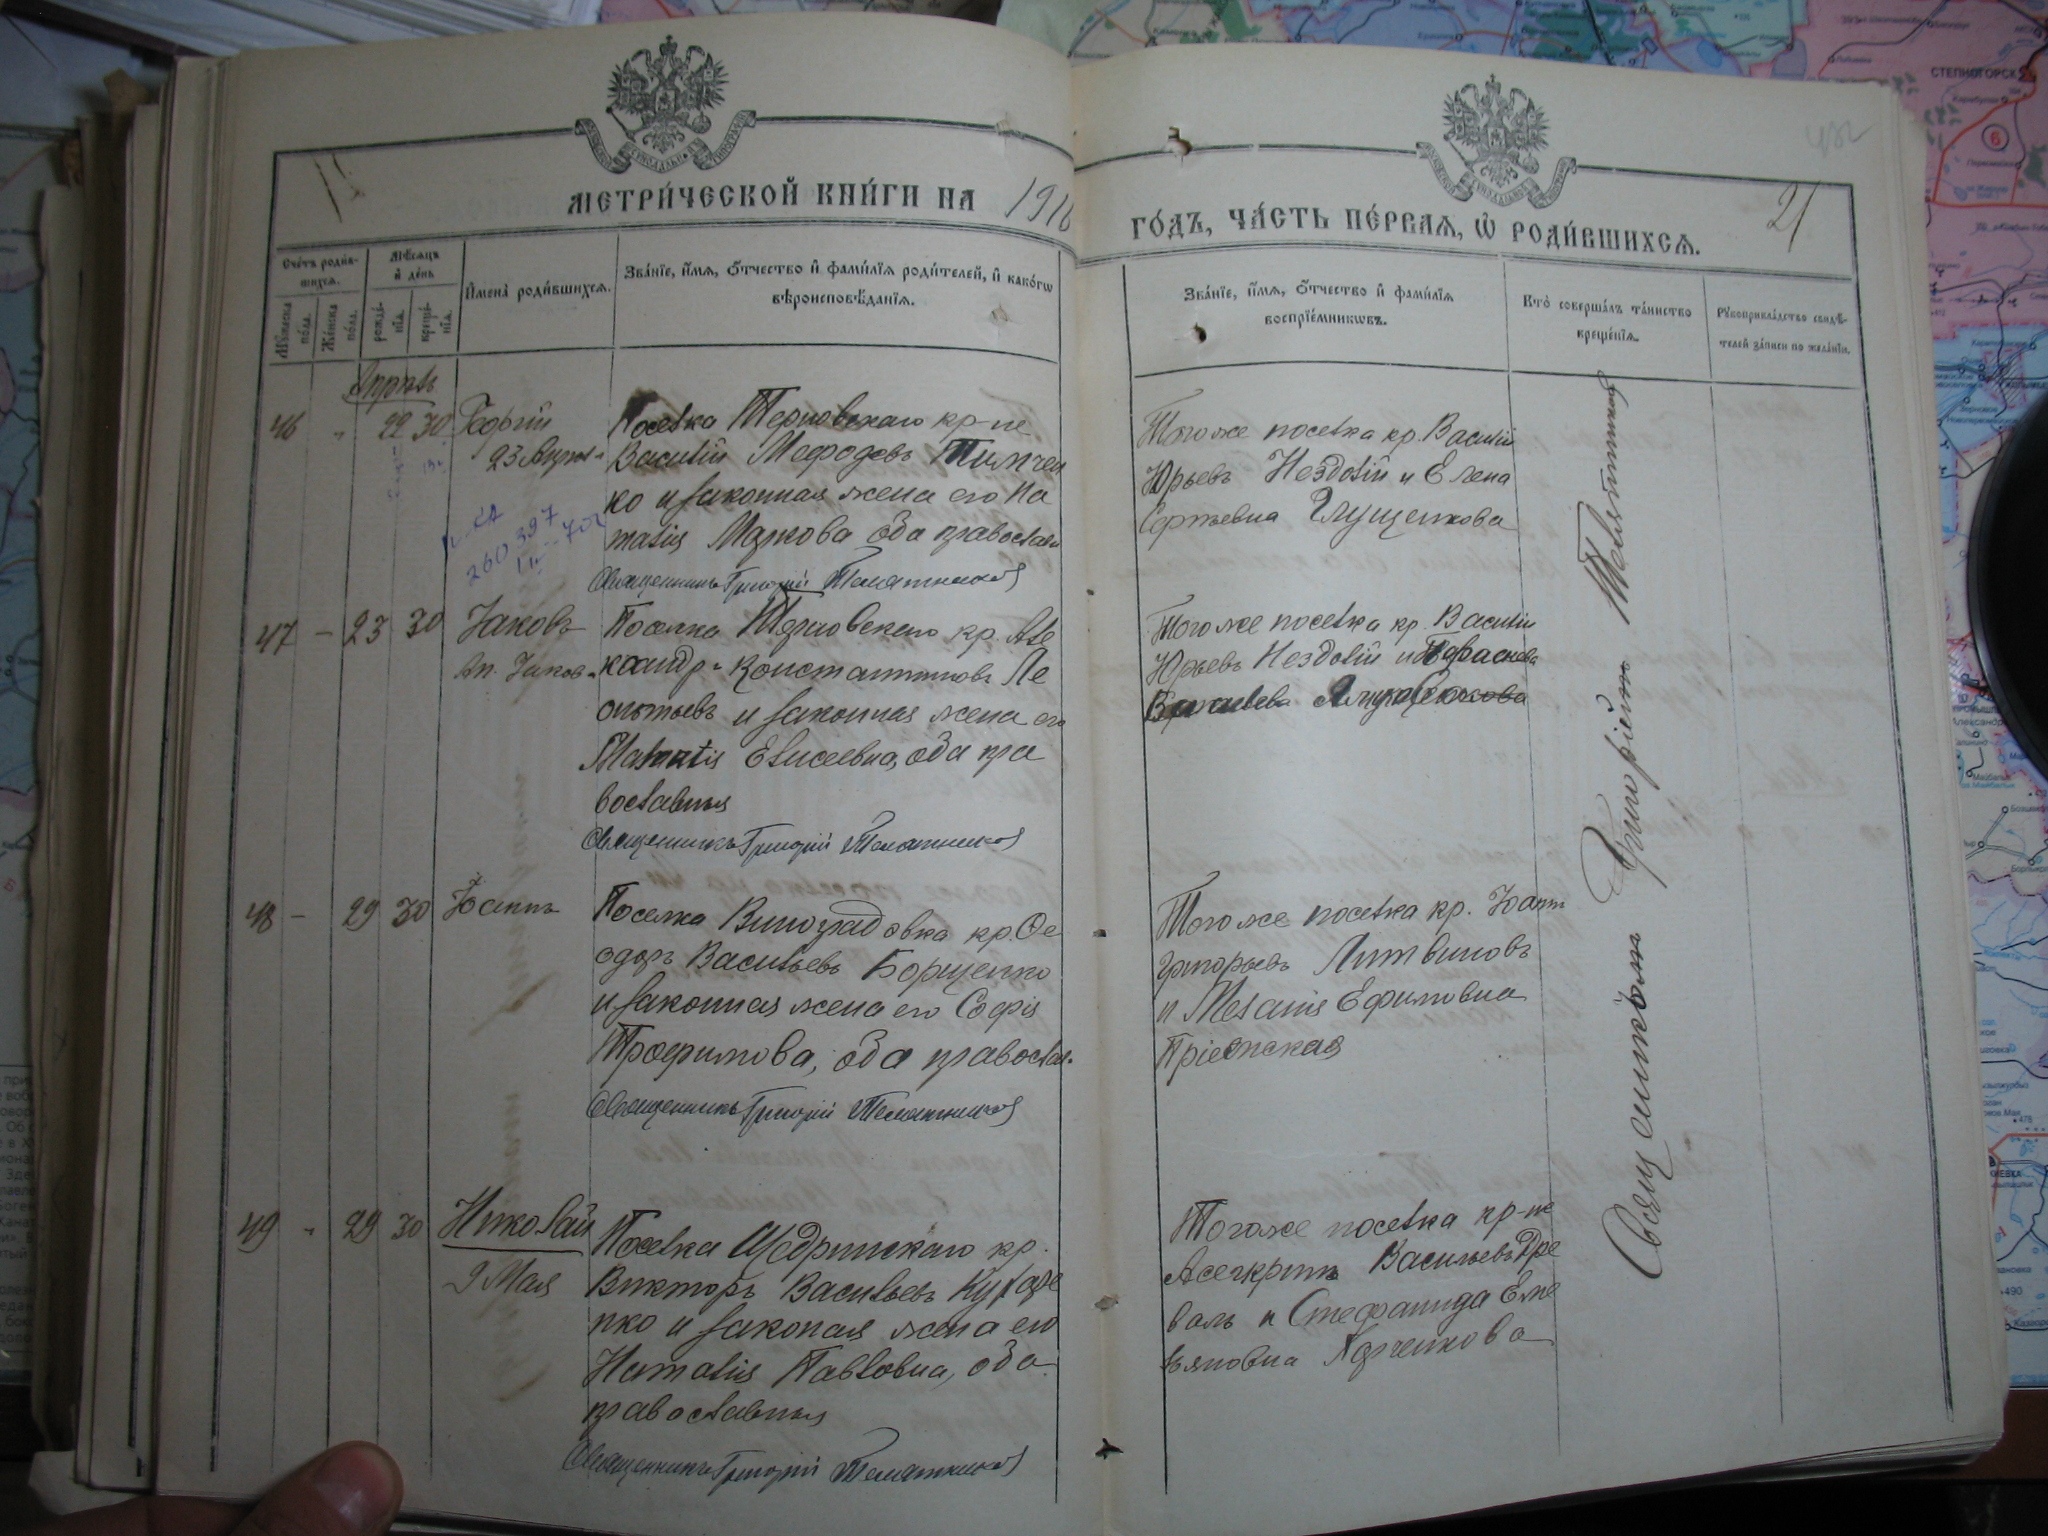 МЕТРИ́ЧЕСКОЙ КНИ́ГИ НА 1916
ГО́ДЪ, ЧА́СТЬ ПЕ́РВАЯ, Ѽ РОДИ́ВШИХСЯ.
21
Сче́тъ роди́в-
шихся.
Мѣ́сяцъ
и҆ де́нь
Мꙋ́жеска
по́ла.
Же́нска
по́ла.
рожде́-
нїѧ.
креще́-
нїѧ.
И҆мена̀ роди́вшихсѧ.
Зва́нїе, и҆́мѧ, ѻ҆́тчество и҆ фами́лїѧ роди́телей, и҆ како́гѡ
вѣроисповѣ́данїѧ.
Зва́нїе, и҆́мѧ, ѻ҆́тчество и҆ фами́лїѧ
воспрїе́мникѡвъ.
Кто̀ соверша́лъ та́инство
креще́нїѧ.
Рꙋкоприкла́дство свидѣ́-
телей за́писи по жела́нїю.
Апрѣль
46 " 22 30 Георгій
23 Апрѣл
Поселка Терновскаго кр-не
Василій Мефодіевъ Тимчен
ко и законная жена его На
талія Маркова, оба православн
Священникъ Григорій Телятниковъ
Тогоже поселка кр. Василій
Юрьевъ Нездолій и Елена
Сергѣевна Глущенкова
260 397
47 - 23 30 Іаковъ
Ап. Іаков.
Поселка Терновскаго кр. Але
ксандръ Константиновъ Ле
онтьевъ и законная жена его
Елисеевна, оба пра
вославныя
Священникъ Григорій Телятниковъ
Тогоже поселка кр. Василій
Юрьевъ Нездолій и
48 - 29 30 Іоаннъ
Поселка Виноградовка кр. Ѳе
одоръ Васильевъ Борщенко
и законная жена его Софія
Трофимова, оба православ.
Священникъ Григорій Телятниковъ
Тогоже поселка кр. Іоанн
Григорьевъ Литвиновъ
и Меланія Ефимовна
49 " 29 30 Николай
9 Мая
Поселка Щедринскаго кр.
Викторъ Васильевъ Кухаре
нко и законая жена его
Наталія Павловна, оба
православныя
Священникъ Григорій Телятниковъ
Тогоже поселка кр-не
Асигкритъ Васильевъ Дре
валь и Стефанида Еме
льяновна Харченкова
Священникомъ Григоріемъ Телятниковымъ
СТЕПНОГОРСК
6